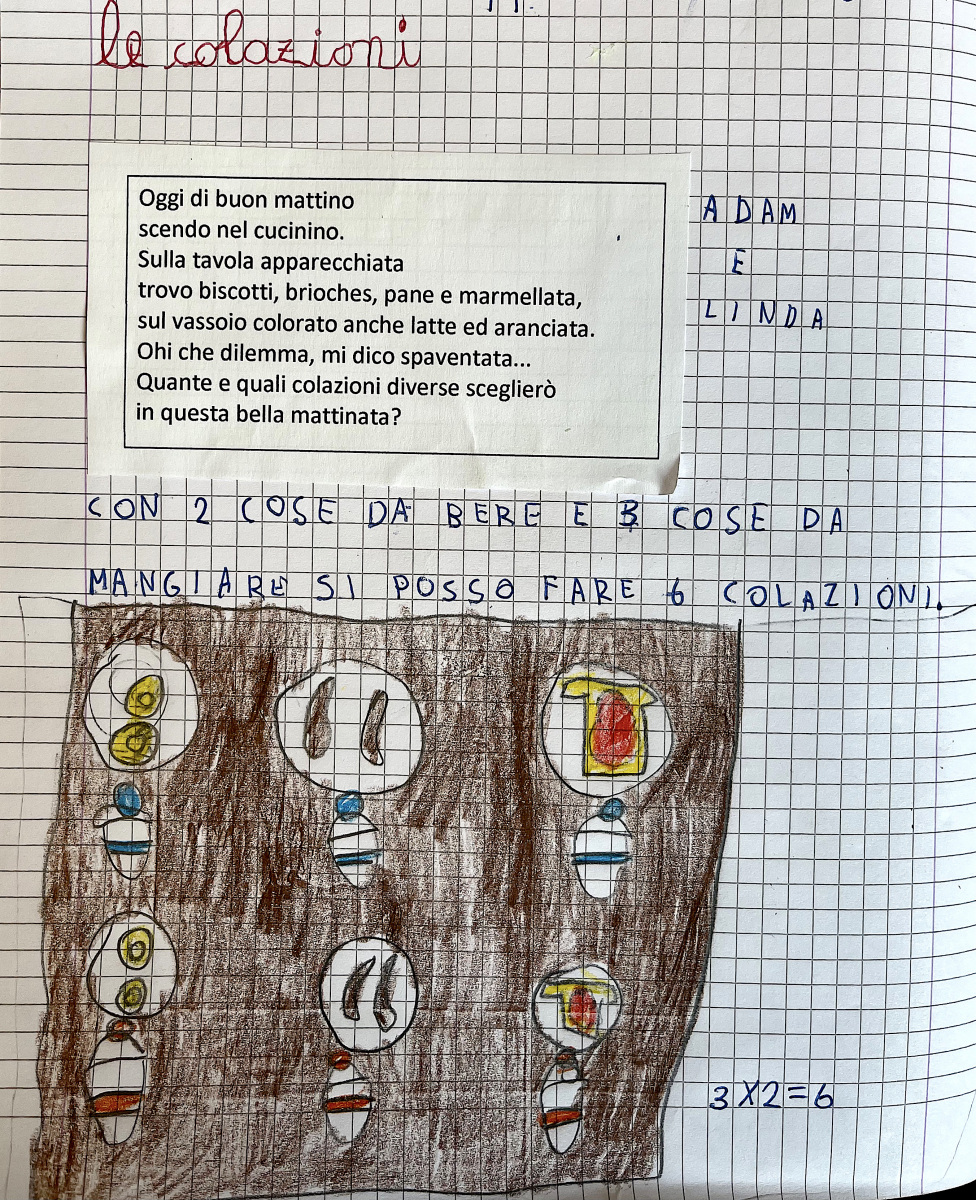 le colazioni
Oggi di buon mattino
scendo nel cucinino.
Sulla tavola apparecchiata
trovo biscotti, brioches, pane e marmellata,
sul vassoio colorato anche latte ed aranciata.
Ohi che dilemma, mi dico spaventata...
Quante e quali colazioni diverse sceglierò
in questa bella mattinata?
ADAM
E
LINDA
CON 2 COSE DA BERE E 3 COSE DA
MANGIARE SI POSSO FARE 6 COLAZIONI.
3X2=6